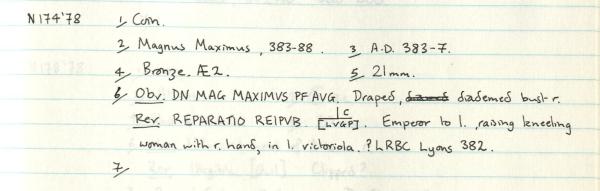 N174'78 1/ Coin.
2/ Magnus Maximus, 383-88. 3/ A.D. 383-7.
4/ Bronze. Æ2. 5/ 21mm.
6/ Obv. DN MAG MAXIMVS PF AVG. Draped, diademed bust r.
Rev. REPARATIO REIPVB. |C
[LVGP]. Emperor to l., raising kneeling
woman with r. hand, in l. victoriola. ? LRBC Lyons 382.
7/